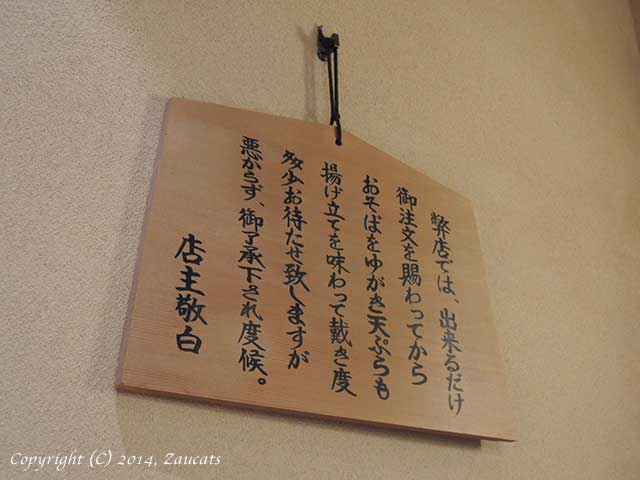 弊店では、出来るだけ
御注文を賜わってから
おそばをゆがき天ぷらも
揚げ立てを味わって戴き度
多少お待たせ致しますが
悪からず、御了承下され度候。
店主敬白
Copyright (C) 2014, Zaucats